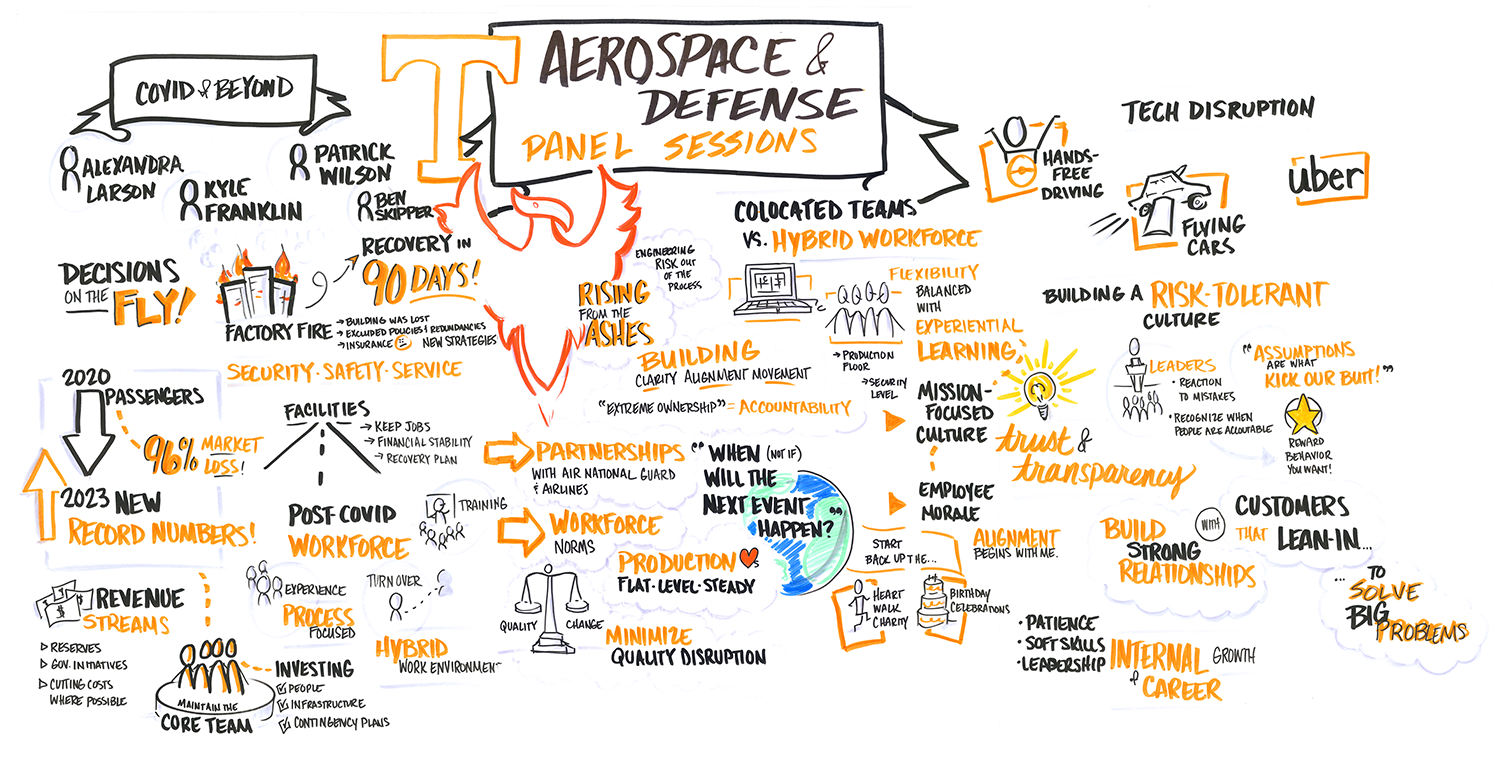 AEROSPACE &
DEFENSE
PANEL SESSIONS
T
COVID & BEYOND
ALEXANDRA
LARSON
KYLE
FRANKLIN
PATRICK
WILSON
BEN
SKIPPER
DECISIONS
ON THE
FLY!
FACTORY FIRE
→ BUILDING WAS LOST
→ EXCLUDED POLICIES & REDUNDANCIES
→ INSURANCE
NEW STRATEGIES
RECOVERY IN
90 DAYS!
SECURITY · SAFETY · SERVICE
RISING
FROM THE
ASHES
ENGINEERING
RISK OUT
OF THE
PROCESS
2020
PASSENGERS
96% MARKET
LOSS!
2023 NEW
RECORD NUMBERS!
FACILITIES
→ KEEP JOBS
→ FINANCIAL STABILITY
→ RECOVERY PLAN
POST COVID
WORKFORCE
TRAINING
EXPERIENCE
PROCESS
FOCUSED
TURN OVER
HYBRID
WORK ENVIRONMENT
REVENUE
STREAMS
▷ RESERVES
▷ GOV. INITIATIVES
▷ CUTTING COSTS
WHERE POSSIBLE
MAINTAIN THE
CORE TEAM
INVESTING
☑ PEOPLE
☑ INFRASTRUCTURE
☑ CONTINGENCY PLANS
COLOCATED TEAMS
VS. HYBRID WORKFORCE
→ PRODUCTION
FLOOR
→ SECURITY
LEVEL
FLEXIBILITY
BALANCED
WITH
EXPERIENTIAL
LEARNING
BUILDING
CLARITY ALIGNMENT MOVEMENT
"EXTREME OWNERSHIP" = ACCOUNTABILITY
PARTNERSHIPS
WITH AIR NATIONAL GUARD
& AIRLINES
WORKFORCE
NORMS
PRODUCTION ♥'s
FLAT - LEVEL - STEADY
QUALITY
CHANGE
MINIMIZE
QUALITY DISRUPTION
"WHEN (NOT IF)
WILL THE
NEXT EVENT
HAPPEN?"
MISSION-
FOCUSED
CULTURE
EMPLOYEE
MORALE
trust &
transparency
START
BACK UP THE...
HEART
WALK
CHARITY
BIRTHDAY
CELEBRATIONS
ALIGNMENT
BEGINS WITH ME.
TECH DISRUPTION
HANDS-
FREE
DRIVING
FLYING
CARS
uber
BUILDING A RISK-TOLERANT
CULTURE
LEADERS
• REACTION
TO MISTAKES
• RECOGNIZE WHEN
PEOPLE ARE ACCOUTABLE
"ASSUMPTIONS
ARE WHAT
KICK OUR BUTT!"
REWARD
BEHAVIOR
YOU WANT!
BUILD
STRONG
RELATIONSHIPS
WITH
CUSTOMERS
THAT LEAN-IN...
...TO
SOLVE
BIG
PROBLEMS
• PATIENCE
• SOFT SKILLS
• LEADERSHIP
INTERNAL GROWTH
& CAREER